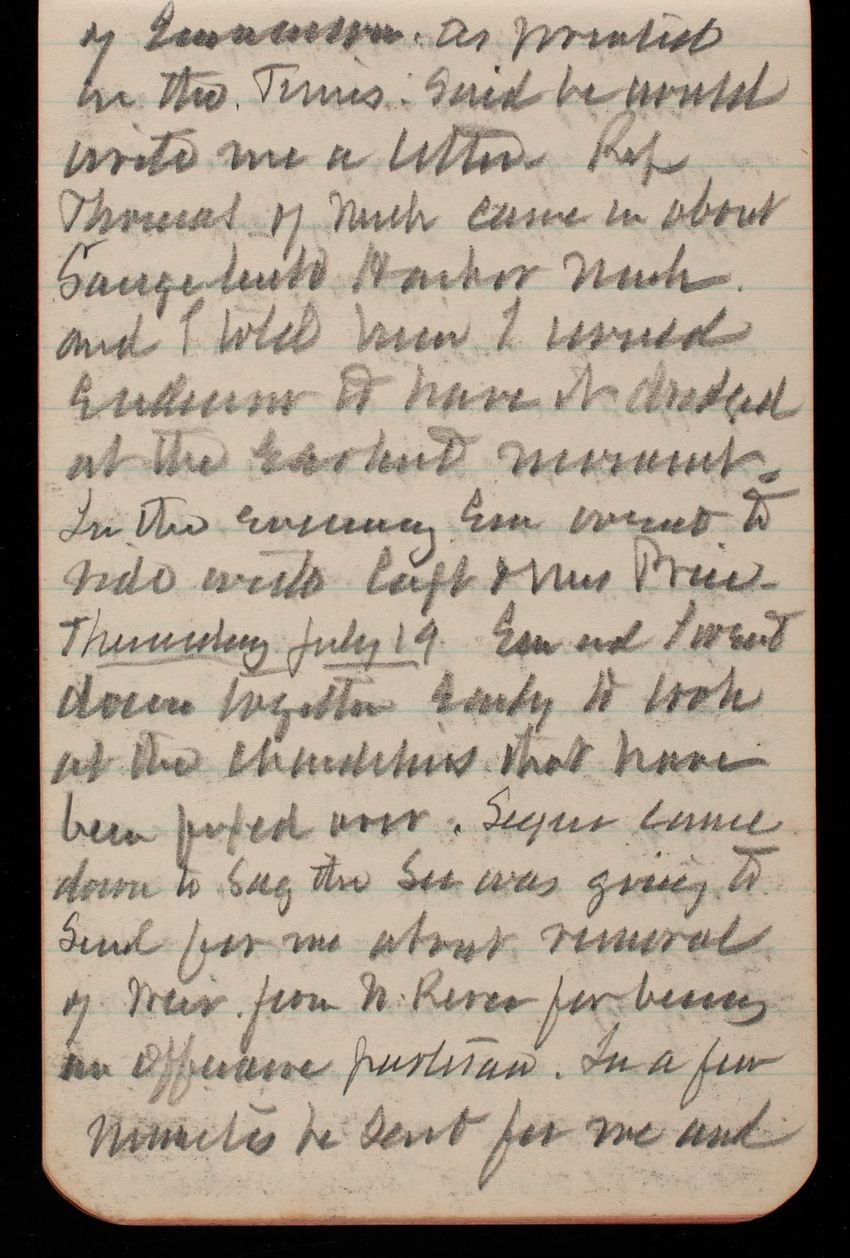 of as printed
in the Times. Said he would
write me a letter Rep
Thomas of Mich came in about
Saugatuck Harbor Mich.
and I told him I would
Endeavor to have it dredged
at the Earliest moment.
In the evening Em went to
ride with Capt & Mrs Price.
Thursday July 19 Em and I went
down together Early to look
at the chandeliers that have
been fixed over. came
down to Say the Sec was going to
Send for me about removal
of Weir from N. River for being
an offensive partisan. In a few
minutes he sent for me and